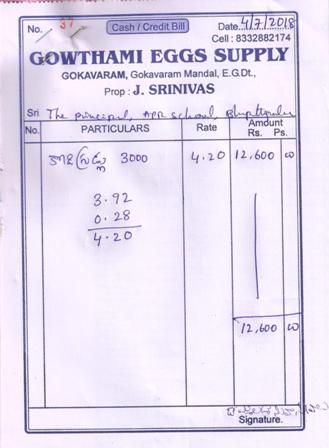 No. 37 Cash / Credit Bill Date. 4/7/2018
Cell : 8332882174
GOWTHAMI EGGS SUPPLY
GOKAVARAM, Gokavaram Mandal, E.G.Dt.,
Prop : J. SRINIVAS
Sri The principal, APR School,
No. PARTICULARS Rate Amount
Rs. Ps.
3000 4.20 12,600 00
3.92
0.28
4.20
12,600 00
Signature.